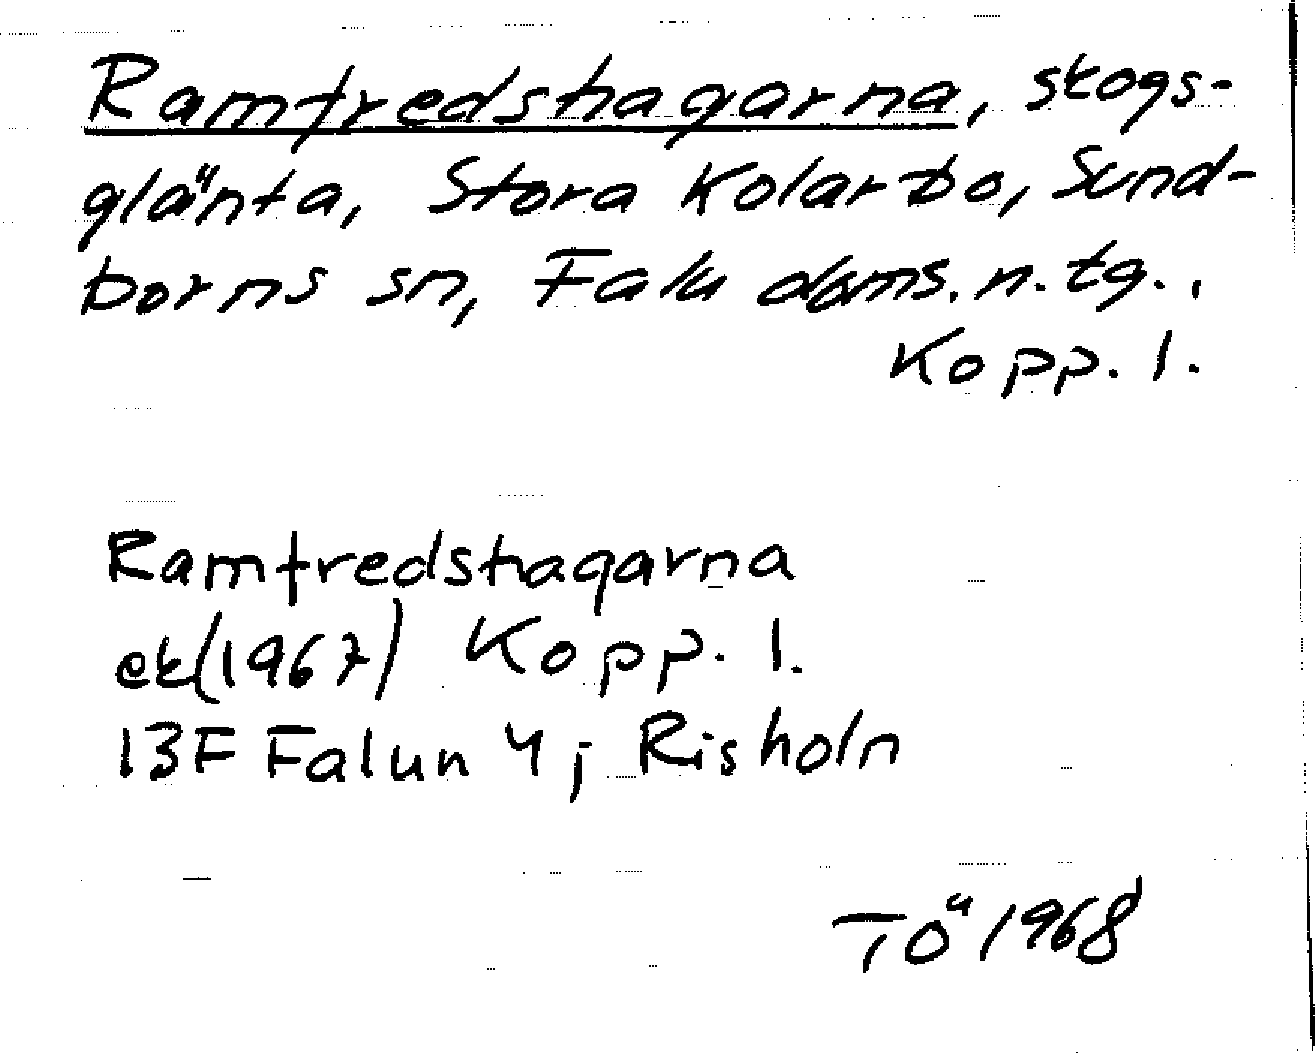 Ramfredshagarna, skogs-
glänta, Stora Kolarbo, Sund-
borns sn, Falu doms. n. tg.,
Kopp. l.
Ramfredshagarna
ek(1967) Kopp. l.
13F Falun 4j Risholn
TÖ 1968